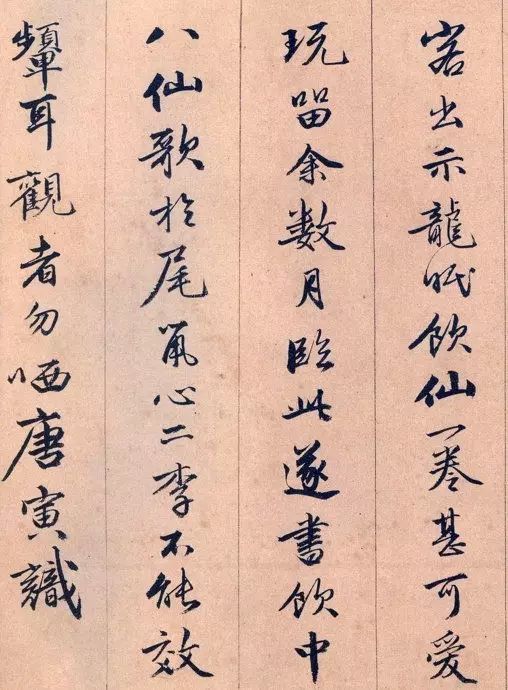 出示龍眠飲仙一卷甚可爱
玩留余数月臨此遂書飲中
八仙歌於尾鼠心二李不能效
顰耳觀者勿哂唐寅識